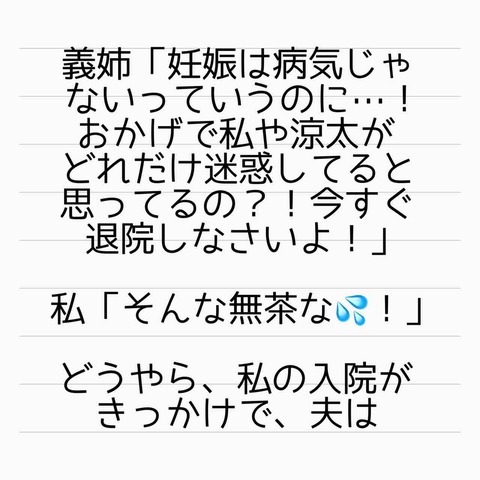 義姉「妊娠は病気じゃ
ないっていうのに…！
おかげで私や涼太が
どれだけ迷惑してると
思ってるの？！今すぐ
退院しなさいよ！」
私「そんな無茶な💦！」
どうやら、私の入院が
きっかけで、夫は